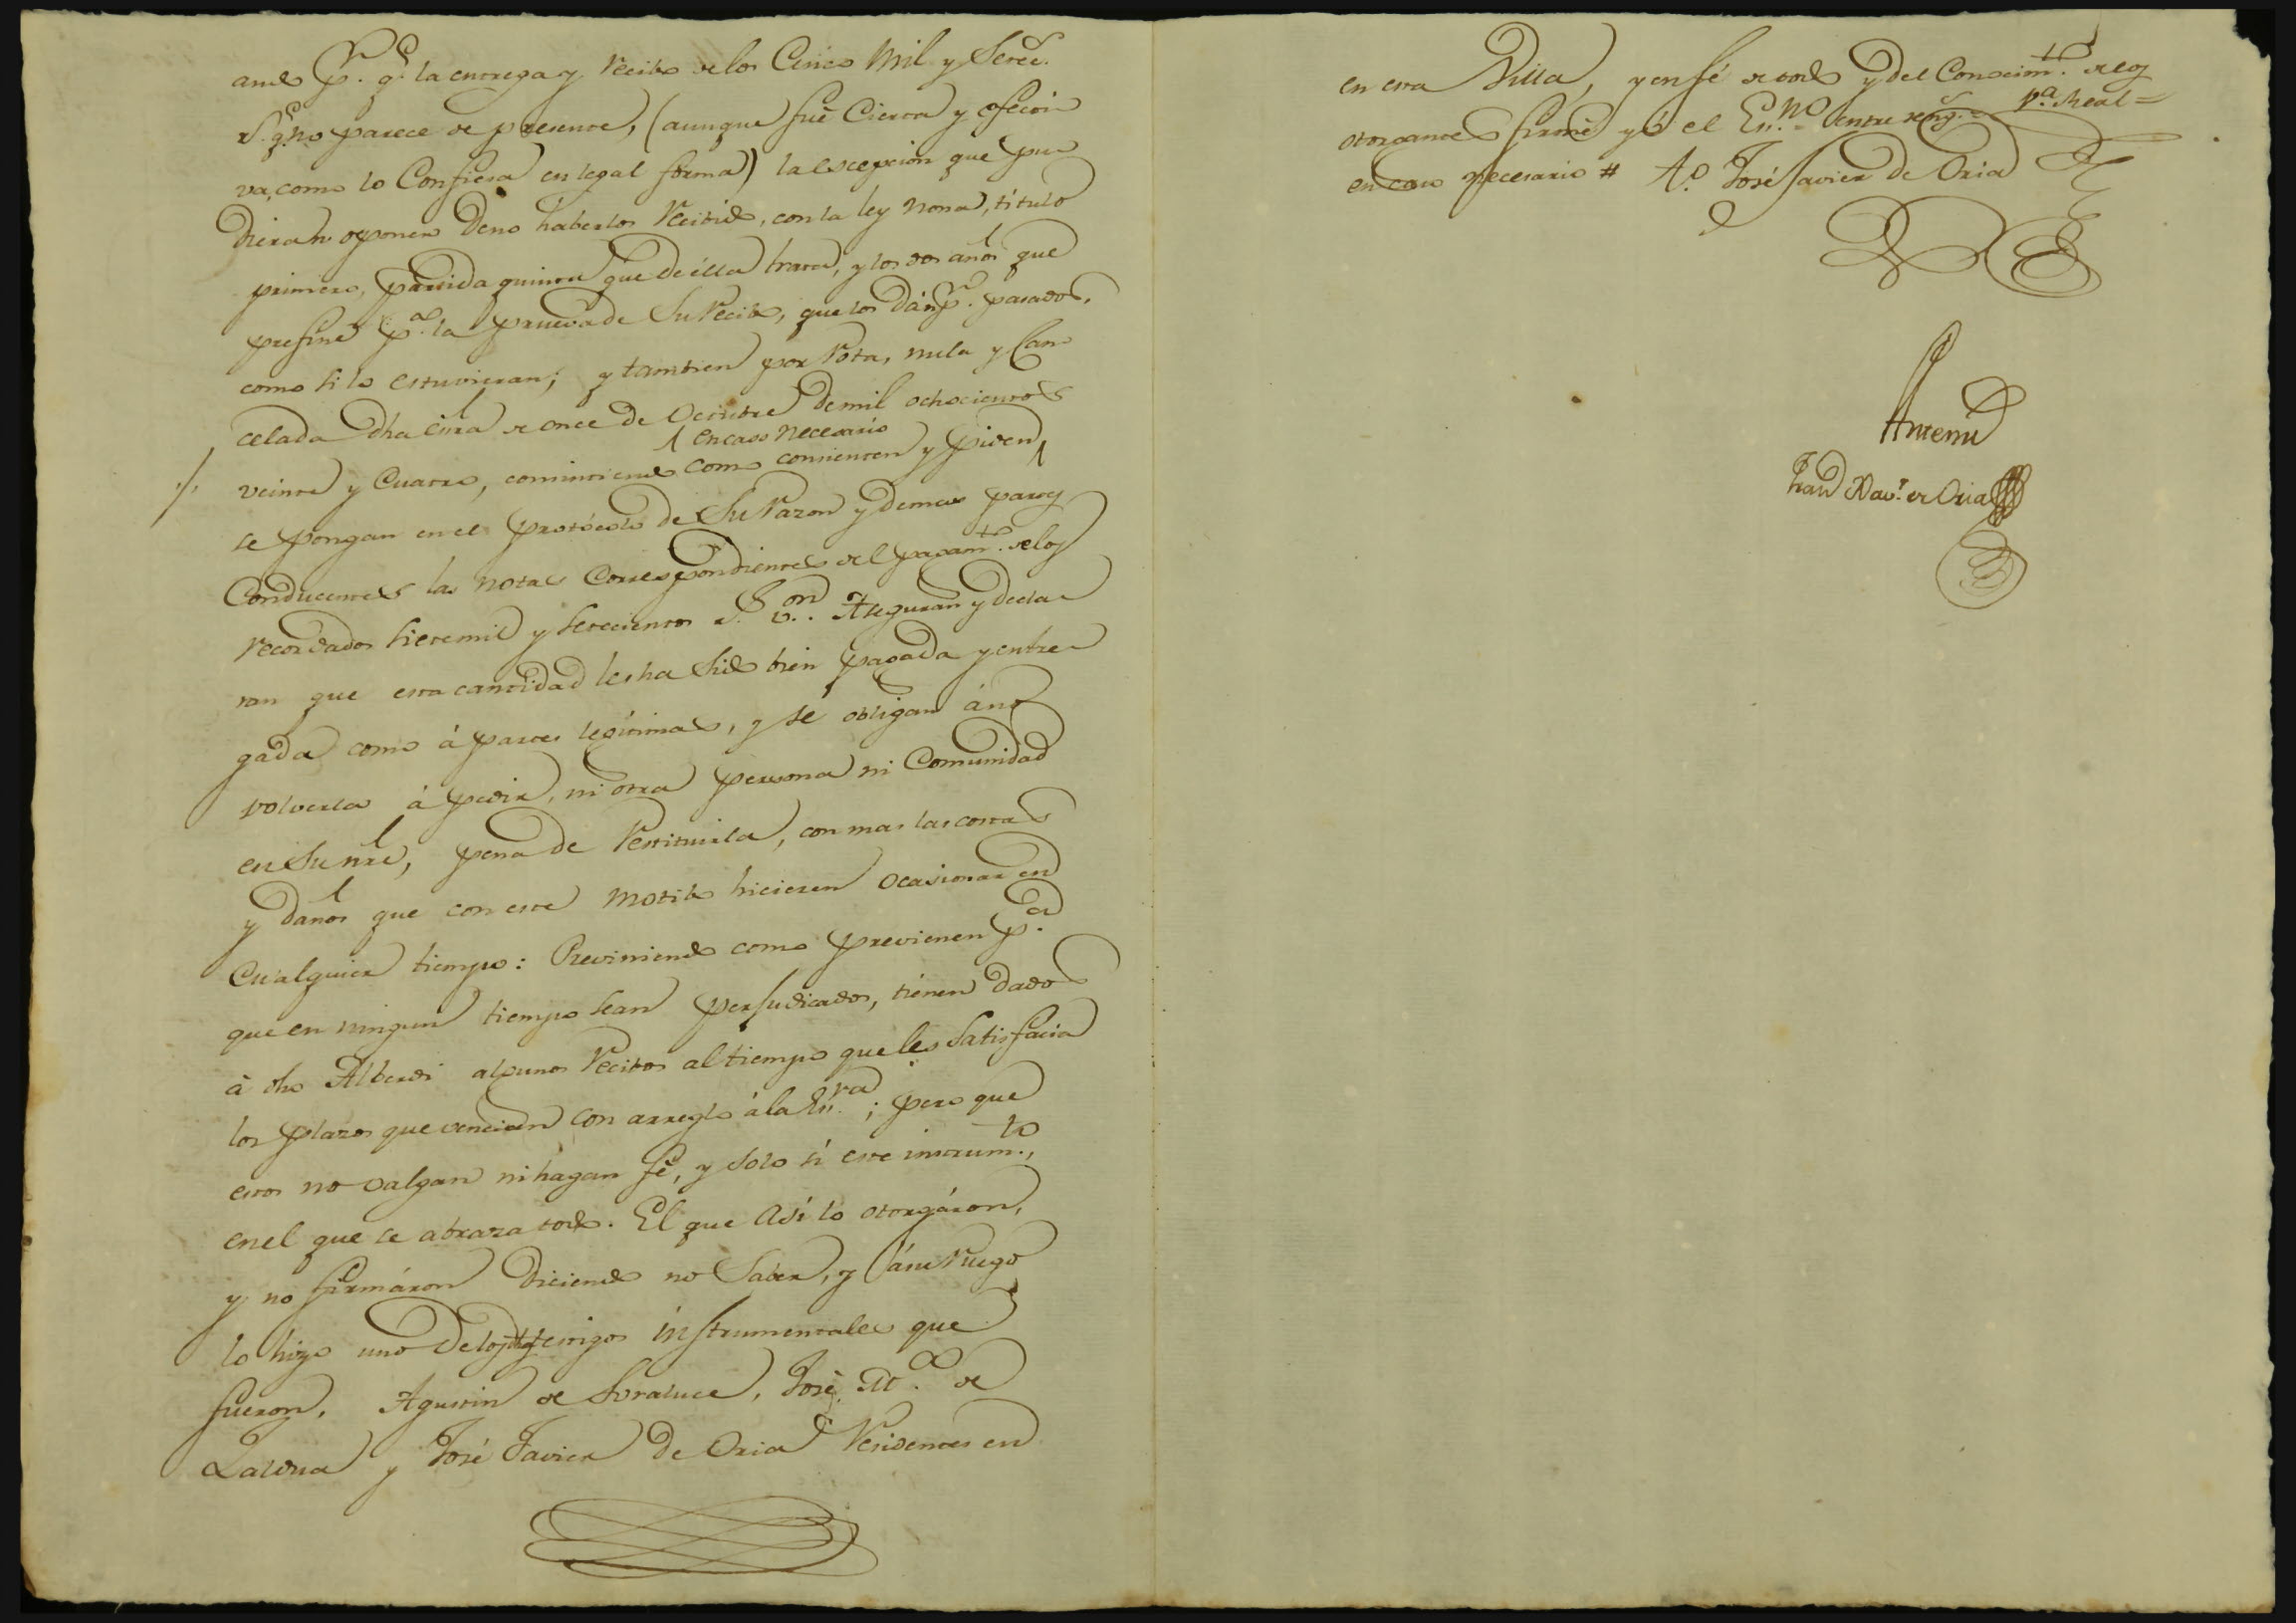 ando p.r q.e la entrega y recibo de los Cinco mil y Setec.s
r.s q.e no parece de presente, (aunque fué Cierta y efecti
va, como lo Confiesa en legal forma) la escepcion que pu
dieran oponer de no haberlos recibido, con la ley nona, titulo
primero, partida quinta que de élla trata, y los dos años que
prefine p.a la prueva de Su recibo, que los dán p.r pasados,
como si lo estuvieran; y tambien por rota, nula y Can
celada dha esc͞ra de once de Octubre de mil ochocientos
en caso necesario
veinte y Cuatro, consintiendo como consienten y piden
se pongan en el protócolo de Su razon y demas partes
Conducentes las notas Correspondientes del pagam.to de los
recordados Siete mil y Setecientos r.s v.on. Aseguran y decla
ran que esta cantidad les ha Sido bien pagada y entre
gada como á partes legitimas, y se obligan á no
volverla á pedir, ni otra persona ni Comunidad
en Su nre, pena de restituirla, con mas las costas
y daños que con este motibo hicieren ocasionar en
Cualquier tiempo: Previniendo como previenen p.a
que en ningun tiempo sean perjudicados, tienen dados
à dho Alberdi algunos recibos al tiempo que les Satisfacia
los plazos que vencian con arreglo á la Es.ra; pero que
estos no valgan ni hagan fé, y solo si este instrum.to,
en el que se abraza todo. El que Asi lo otorgáron,
y no firmáron diciendo no Saber, y á su ruego
lo hizo uno de los testigos instrumentales que
fueron, Agustin de Soraluce, José Ant.o de
Laluna y José Javier de Oria residentes en
en esta Villa, y en fé de todo y del Conocim.to de los
otorgantes firmé yó el Es.no = entre reng.s = p.a Real =
en caso necesario # T.o José Javier de Oria
Antemi
Fran.co Xav.r de Oria